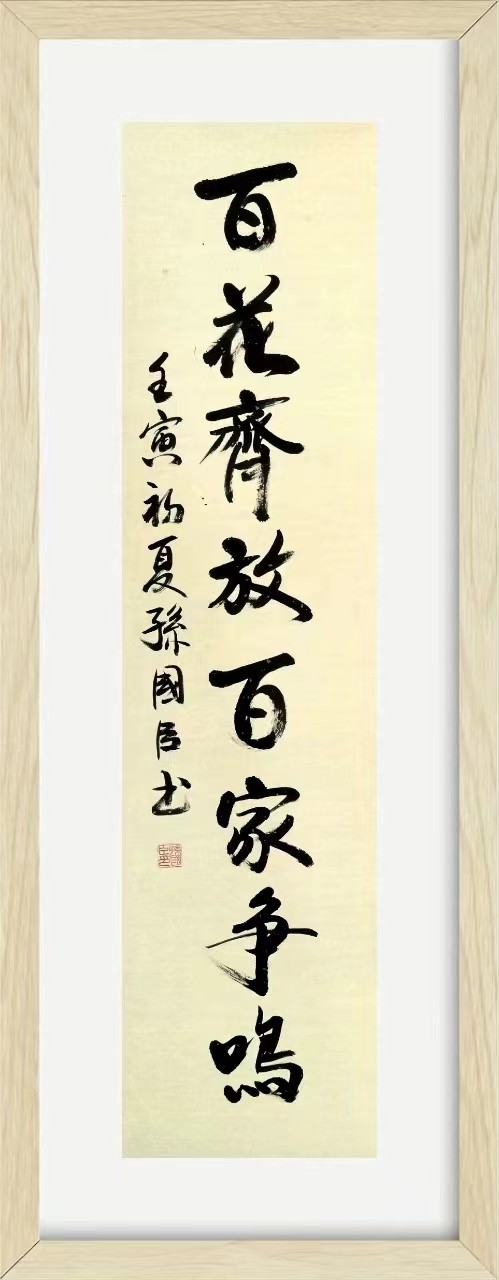 百花齊放百家争鳴
壬寅初夏孫國居书